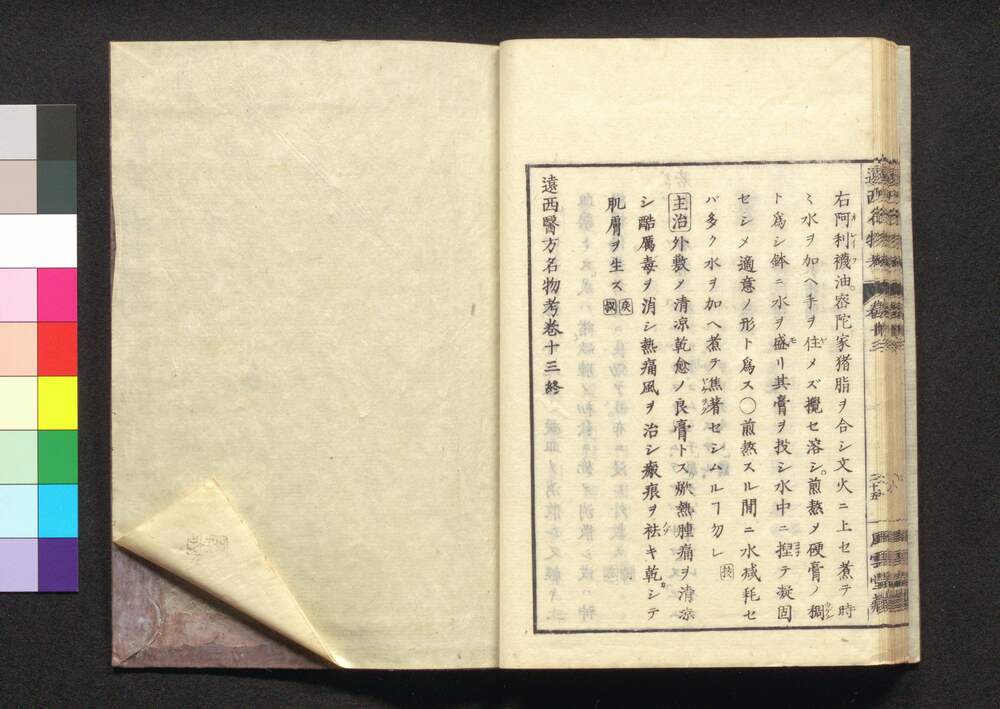 右阿利襪油。宻陀家猪脂ヲ合シ文火ニ上セ煮テ時
ミ水ヲ加ヘ手ヲ住メズ攪セ溶シ。煎熬メ硬膏ノ稠
ト爲シ鉢ニ水ヲ盛リ其膏ヲ投シ水中ニ揑テ凝固
セシメ適意ノ形ト爲ス〇煎熬スル間ニ水減耗セ
バ多ク水ヲ加ヘ煮テ焦著セシムルヿ勿レ
主治外敷メ清凉乾愈ノ良膏トス焮熱腫痛ヲ清凉
シ酷厲毒ヲ消シ熱痛風ヲ治シ瘢痕ヲ祛キ乾シテ
肌膚ヲ生ス
遠西醫方名物考卷十三終
遠西名物考
卷十三
二十五
風雲堂藏